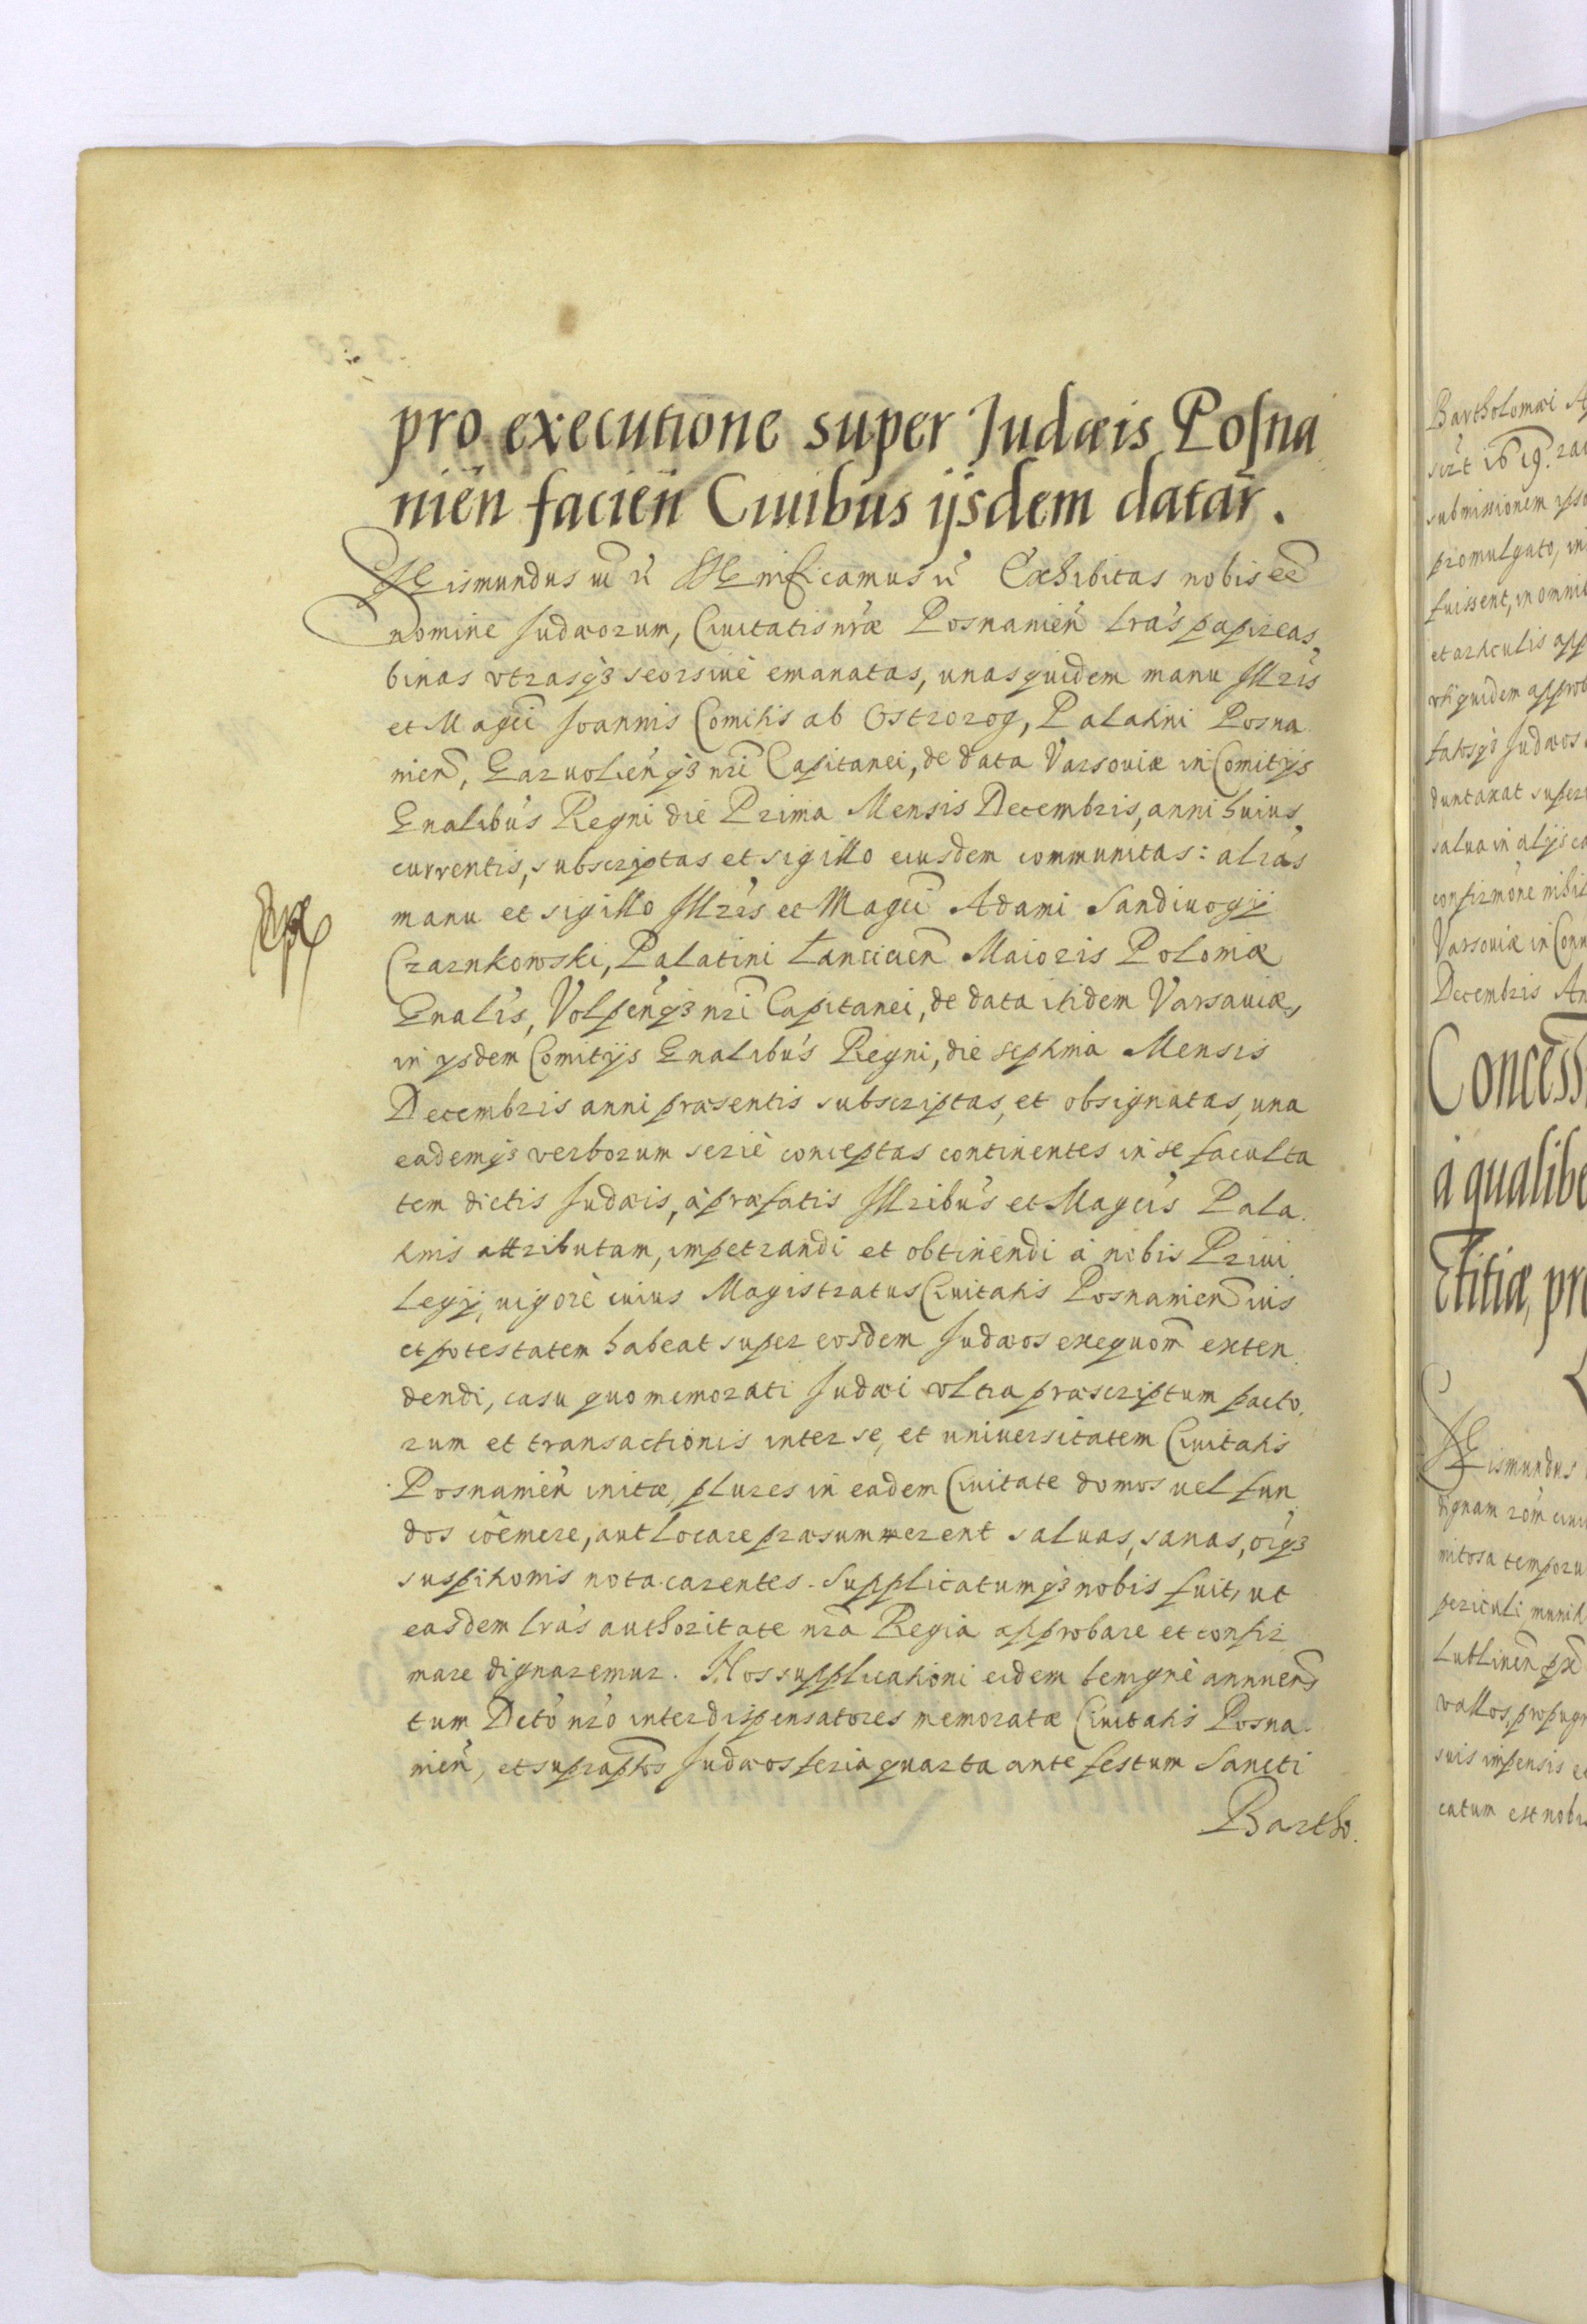 pro executione super Judæis Posna
nien̄ facien̄ Ciuibus ijsdem datar̄.
Sigismundus etc̄ r̄ Significamus r̄ Exhibitas nobis eē
nomine Judæorum, Ciuitatis nr̄æ Posnanien̄ lr̄as papireas,
binas vtrasq3 seorsiuè emanatas, unas quidem manu Illr̄is
et Magci Joannis Comitis ab Ostrorog, Palatini Posna
nien̄, Garuolien̄q3 nr̄i Capitanei, de data Varsouiæ in Comitijs
Gnalibus Regni die Prima Mensis Decembris, anni huius,
currentis, subscriptas et sigillo eiusdem communitas: alias
manu et sigillo Illr̄is et Magci Adami Sandiuogij
Czarnkowski, Palatini Lancicien̄ Maioris Poloniæ
Gnalis, Volpen̄q3 nr̄i Capitanei, de data itidem Varsauiæ,
in ysdem Comitijs Gnalibus Regni, die septima Mensis
Decembris anni præsentis subscriptas, et obsignatas, una
eademq3 verborum seriè conceptas continentes in se faculta
tem dictis Judæis, à præfatis Illribus et Magcis Pala.
tinis attributam, impetrandi et obtinendi à nobis Priui
legij, uigorè cuius Magistratus Ciuitatis Posnanien̄ ius
et potestatem habeat super eosdem Judæos exequom̄ exten
dendi, casu quo memorati Judæi vltra præscriptum pacto.
rum et transactionis inter se, et uniuersitatem Ciuitatis
Posnanien̄ initæ, plures in eadem Ciuitate domos uel fun
dos coëmere, aut locare præsummerent saluas, sanas, oīq3
suspitionis nota carentes. Supplicatumq3 nobis fuit, ut
easdem lr̄as authoritate nr̄a Regia approbare et confir
mare dignaremur. Nos supplicationi eidem benignè annuen̄
tum Dctō nr̄o inter dispensatores memoratæ Ciuitatis Posna.
nien̄, et supraptos Judæos feria quarta ante festum Sancti
Bartho.
Bartholomæi
submissionem
promulgato, in
fuissent, in omnib
et articulis app
duntaxat super
salua in alijs
Varsouiæ in Conu
Decembris An
Concess
à qualibe
pro
Sigismundus
mitosa temporu
periculi
Lublinen̄
vallos, propugn
suis impensis e
catum est nobis